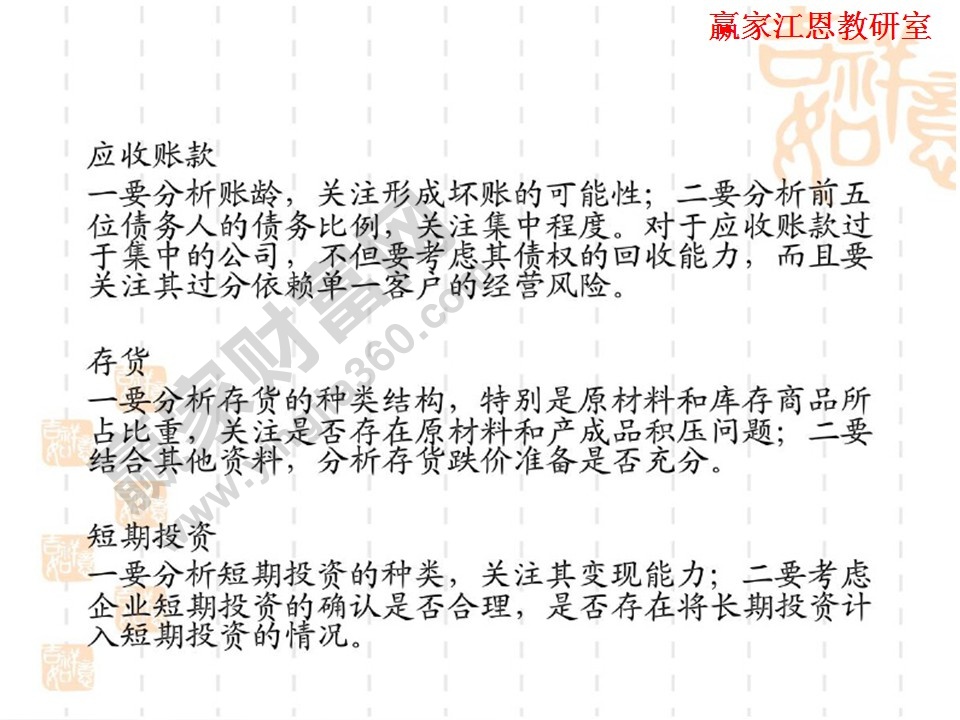 赢家江恩教研室
应收账款
一要分析账龄，关注形成坏账的可能性；二要分析前五
位债务人的债务比例，关注集中程度。对于应收账款过
于集中的公司，不但要考虑其债权的回收能力，而且要
关注其过分依赖单一客户的经营风险。
存货
一要分析存货的种类结构，特别是原材料和库存商品所
占比重，关注是否存在原材料和产成品积压问题；二要
结合其他资料，分析存货跌价准备是否充分。
短期投资
一要分析短期投资的种类，关注其变现能力；二要考虑
企业短期投资的确认是否合理，是否存在将长期投资计
入短期投资的情况。
赢家财富网
www.yingjia360.com
吉祥如意